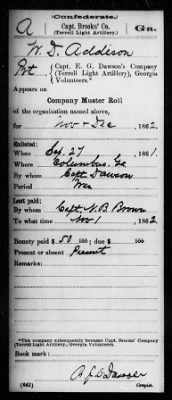 (Confederate.)
A Capt. Brooks' Co. Ga.
(Terrell Light Artillery.)
W. D. Addison
Pvt Capt. E. G. Dawson's Company
(Terrell Light Artillery), Georgia
Volunteers.*
Appears on
Company Muster Roll
of the organization named above,
for Nov & Dec, 1862.
Enlisted:
When Sep. 27, 1861.
Where Columbus, Ga
By whom Capt. Dawson
Period War
Last paid:
By whom Capt. N. B. Brown
To what time Nov 1, 1862
Bounty paid $ 50 100; due $ 100
Present or absent Present
Remarks:
*This company subsequently became Capt. Brooks' Company
(Terrell Light Artillery), Georgia Volunteers.
Book mark:
(642) Copyist.